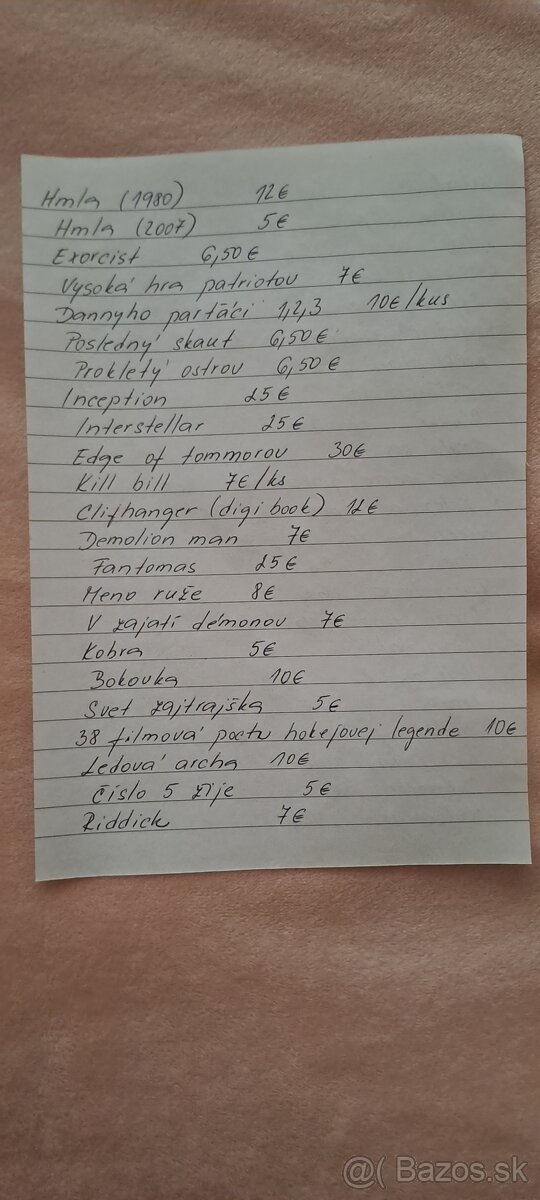 Hmla (1980) 12€
Hmla (2007) 5€
Exorcist 6,50€
Vysoká hra patriotov 7€
Dannyho parťáci 1,2,3 10€/kus
Posledný skaut 6,50€
Prokletý ostrov 6,50€
Inception 25€
Interstellar 25€
Edge of tommorov 30€
Kill bill 7€/ks
Clifhanger (digi book) 12€
Demolion man 7€
Fantomas 25€
Meno ruže 8€
V zajatí démonov 7€
Kobra 5€
Bokovka 10€
Svet zajtrajška 5€
38 filmová pocta hokejovej legende 10€
Ledová archa 10€
Číslo 5 žije 5€
Riddick 7€
@( Bazos.sk